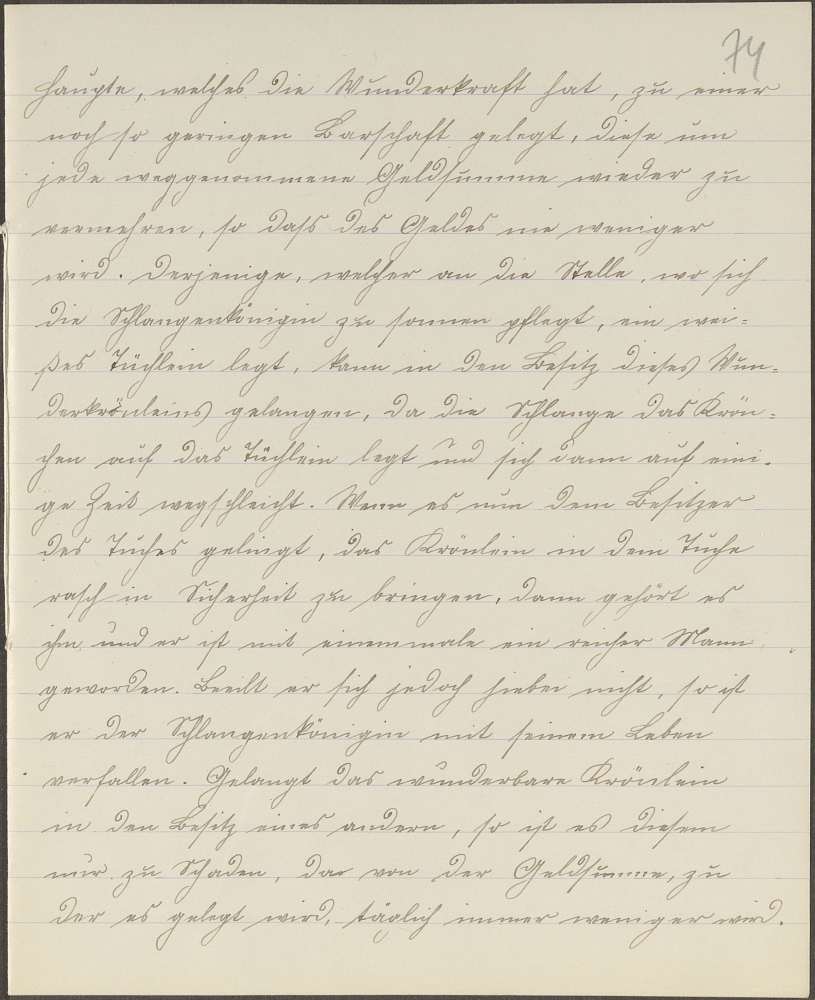 74
Haupte, welches die Wunderkraft hat, zu einer
noch so geringen Barschaft gelegt, diese um
jede weggenommene Geldsumme wieder zu
vermehren, so dass des Geldes nie weniger
wird. Derjenige, welcher an die Stelle, wo sich
die Schlangenkönigin zu sonnen pflegt, ein wei-
ßes Tüchlein legt, kann in den Besitz dieses Wun-
derkrönleins gelangen, da die Schlange das Krön-
chen auf das Tüchlein legt und sich dann auf eini-
ge Zeit wegschleicht. Wenn es nun dem Besitzer
des Tuches gelingt, das Krönlein in dem Tuche
rasch in Sicherheit zu bringen, dann gehört es
ihm und er ist mit einemmale ein reicher Mann
geworden. Beeilt er sich jedoch hiebei nicht, so ist
er der Schlangenkönigin mit seinem Leben
verfallen. Gelangt das wunderbare Krönlein
in den Besitz eines andern, so ist es diesem
nur zu Schaden, da von der Geldsumme, zu
der es gelegt wird, täglich immer weniger wird.